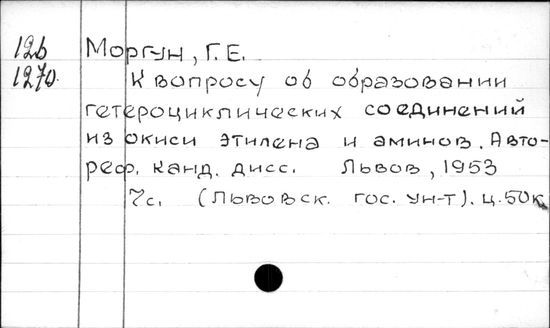 12б Моргун, Г.Е.
1270. К вопросу об образовании
гетероциклических соединений
из окиси этилена и аминов. Авто-
реф. канд. дисс. Львов, 1953
7с. (Львовск. гос. ун-т). ц. 50к.